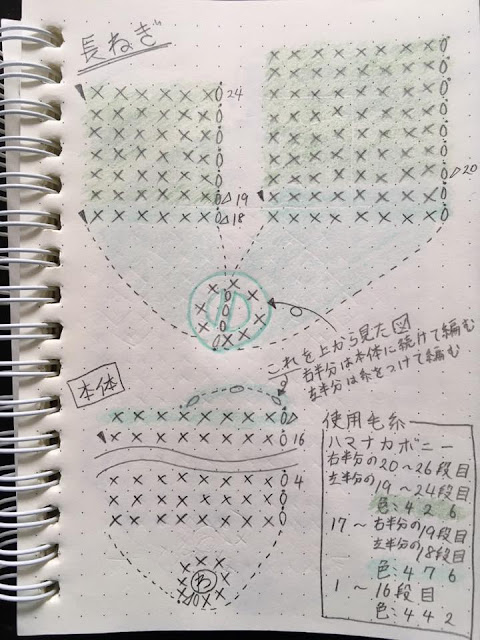 長ねぎ
24
20
19
18
これを上から見た図
右半分は本体に続けて編む
左半分は糸をつけて編む
本体
16
4
わ
使用毛糸
ハマナカボニー
右半分の20〜26段目
左半分の19〜24段目
色:426
17〜右半分の19段目
左半分の18段目
色:476
1〜16段目
色:442